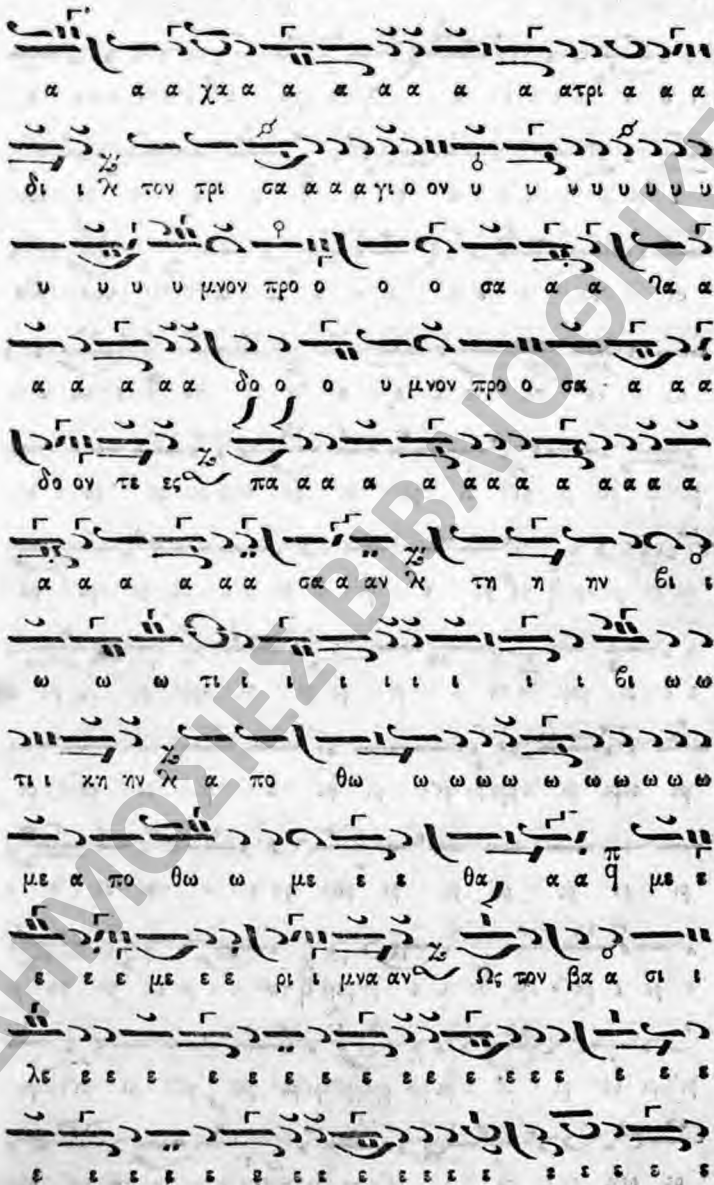 α α α χα α α α α α α α ατρι α α α
δι ι ϗ τον τρι σα α α α γι ο ον υ υ υ υ υ υ υ υ
υ υ υ υ μνον προ ο ο ο σα α α λα α
α α α α α δο ο ο υ μνον προ ο σα α α α
δο ον τε ες πα α α α α α α α α α α α α
α α α α α α σα α αν ϗ τη η ην βι ι
ω ω ω τι ι ι ι ι ι ι ι ι βι ω ω
τι ι κη ην ϗ α πο θω ω ω ω ω ω ω ω ω ω
με α πο θω ω με ε ε θα α α π q με ε
ε ε ε με ε ε ρι ι μνα αν Ως τον βα α σι ι
λε ε ε ε ε ε ε ε ε ε ε ε ε ε ε ε ε
ε ε ε ε ε ε ε ε ε ε ε ε ε ε ε ε ε
ΔΗΜΟΣΙΕΣ ΒΙΒΛΙΟΘΗΚΕ